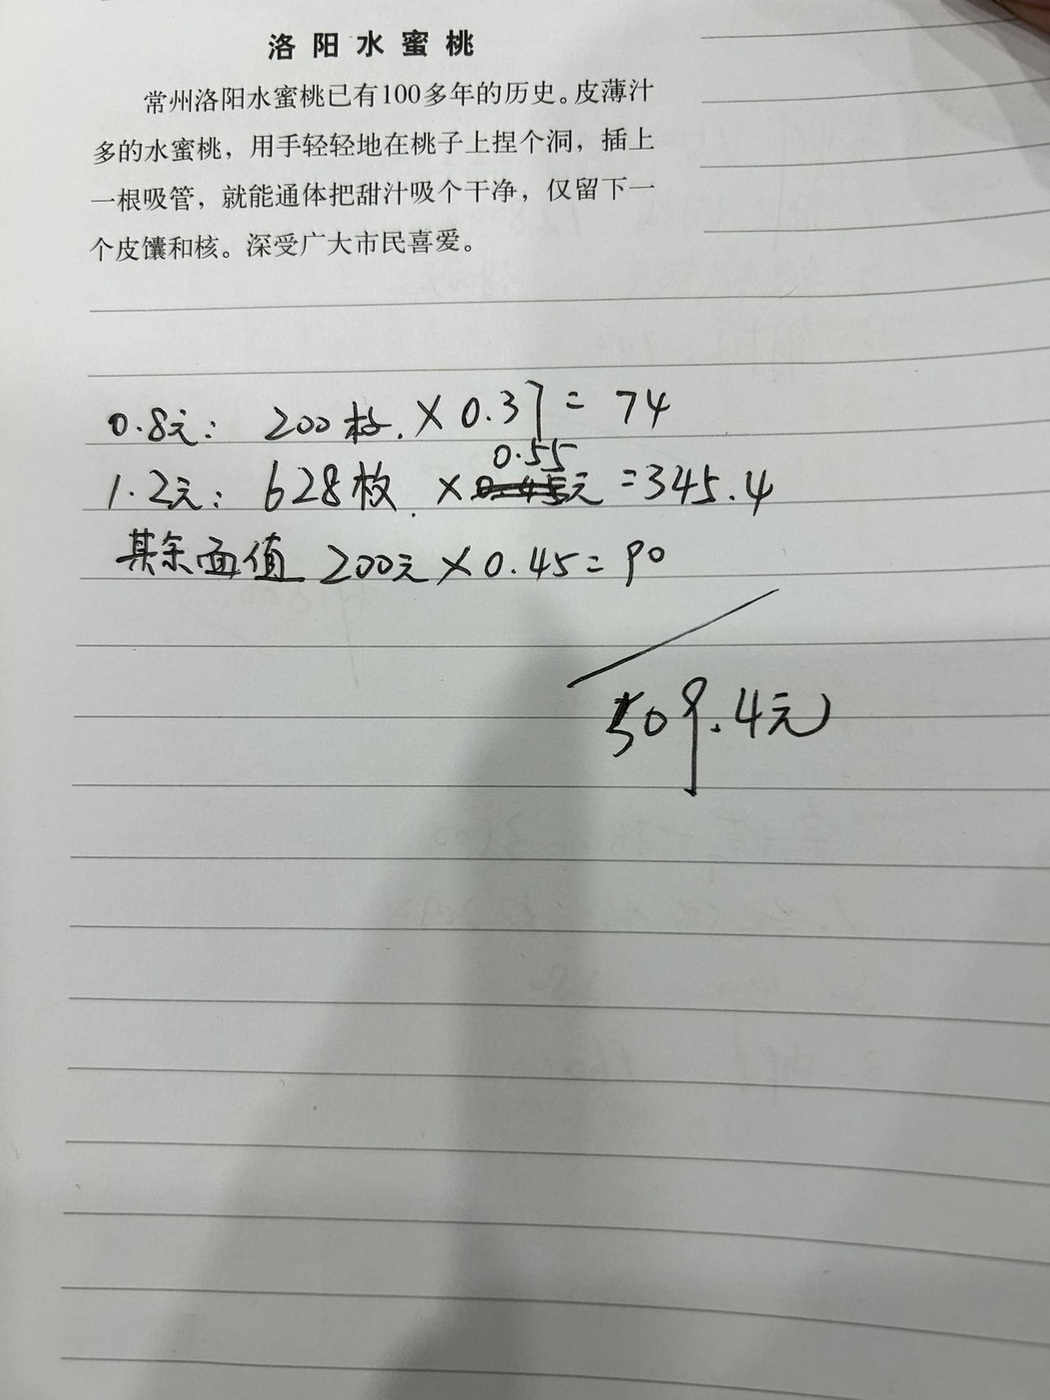 洛阳水蜜桃
常州洛阳水蜜桃已有100多年的历史。皮薄汁
多的水蜜桃，用手轻轻地在桃子上捏个洞，插上
一根吸管，就能通体把甜汁吸个干净，仅留下一
个皮馕和核。深受广大市民喜爱。
0.8元: 200枚. × 0.37 = 74
0.55
1.2元: 628枚. × 0.45元 = 345.4
其余面值 200元 × 0.45 = 90
509.4元